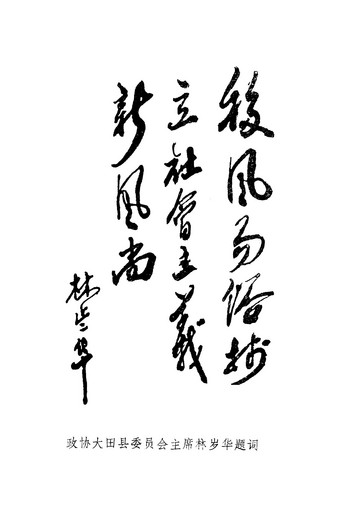 移风易俗树
立社會主義
新风尚
林岁华
政协大田县委员会主席林岁华题词